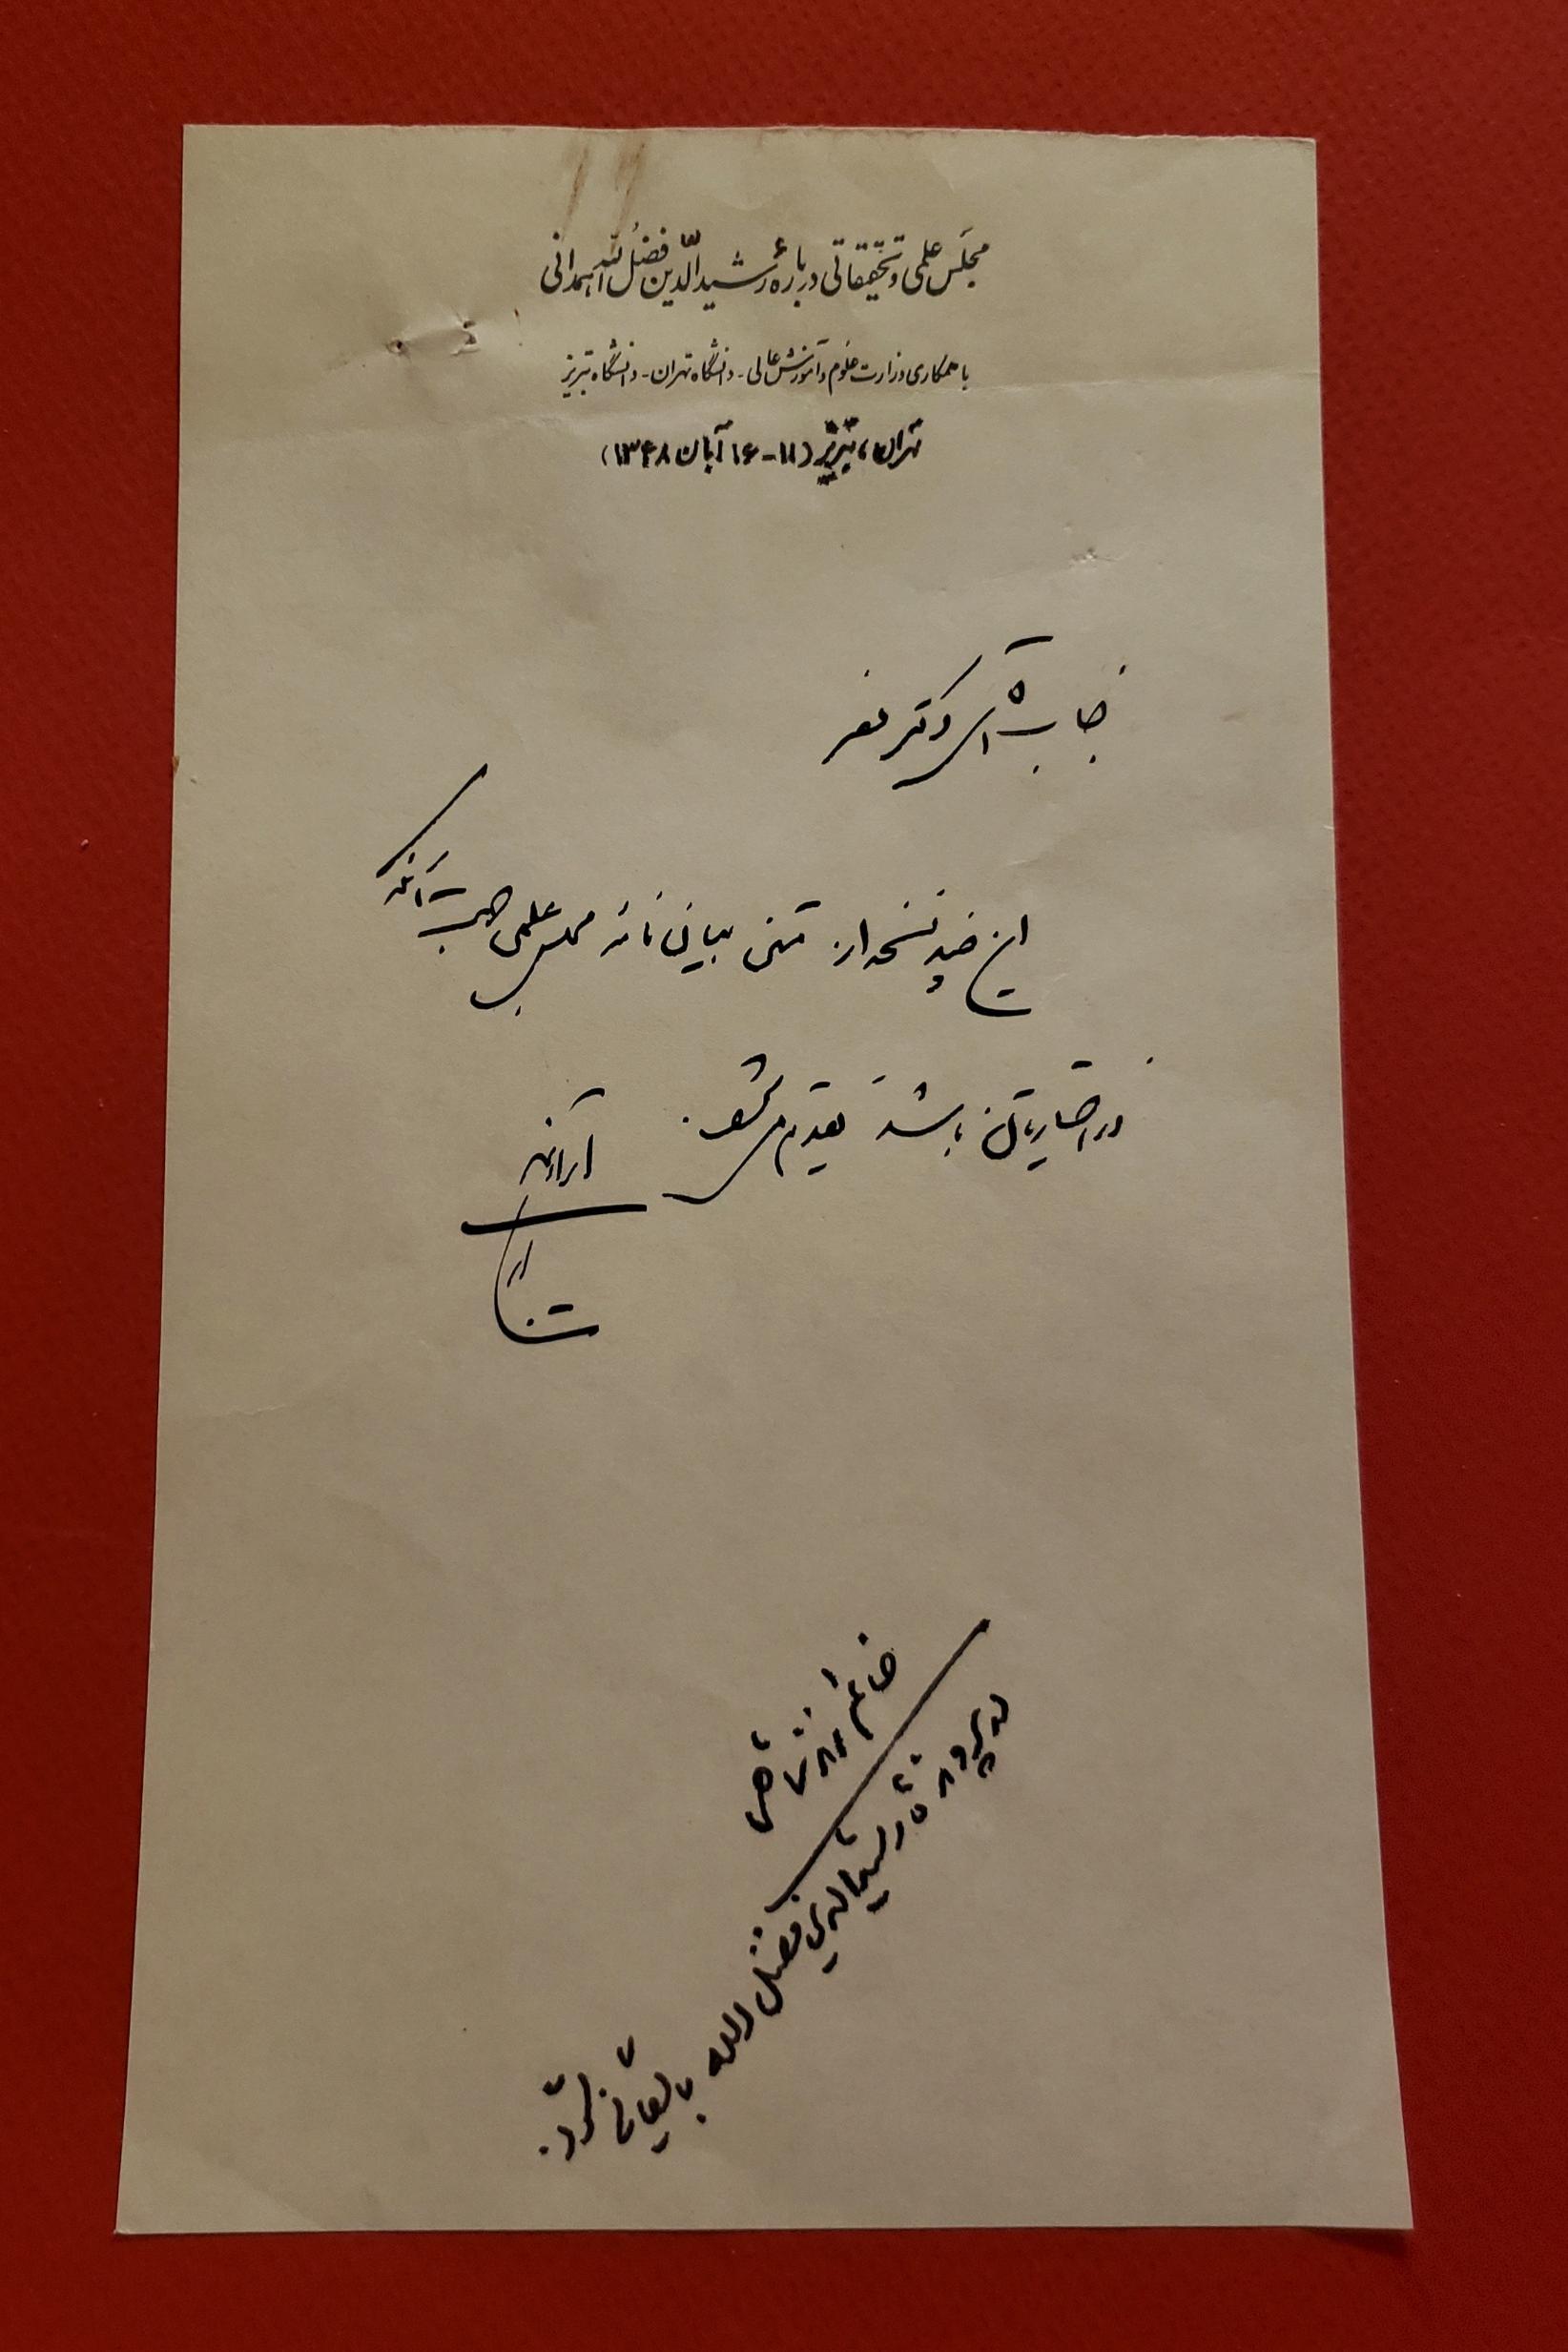 مجلس علمی و تحقیقاتی درباره رشیدالدّین فضل الله همدانی
با همکاری وزارت علوم و آموزش عالی - دانشگاه تهران - دانشگاه تبریز
تهران، تبریز (۱۱-۱۶ آبان ۱۳۴۸)
جناب آقای دکتر نصر
این چند نسخه از متن بیان نامه مجلس علمی جهت آنکه
در اختیارتان باشد تقدیم می‌شود.
خانم
در پرونده رشیدالدین فضل الله بایگانی گردد.